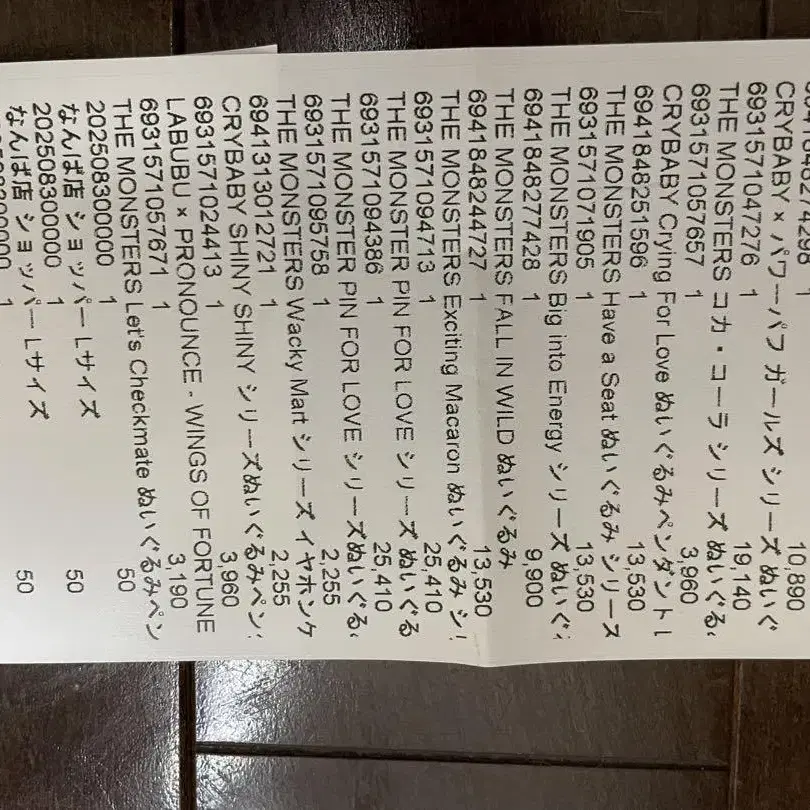 41848274298 1 10,890
CRYBABY × パワーパフ ガールズ シリーズ ぬいぐ
6931571047276 1 19,140
THE MONSTERS コカ・コーラ シリーズ ぬいぐる
6931571057657 1 3,960
CRYBABY Crying For Love ぬいぐるみペンダント L
6941848251596 1 13,530
THE MONSTERS Have a Seat ぬいぐるみ シリーズ
6931571071905 1 13,530
THE MONSTERS Big into Energy シリーズ ぬいぐ
6941848277428 1 9,900
THE MONSTERS FALL IN WILD ぬいぐるみ
6941848244727 1 13,530
THE MONSTERS Exciting Macaron ぬいぐるみ シ
6931571094713 1 25,410
THE MONSTER PIN FOR LOVE シリーズ ぬいぐる
6931571094386 1 25,410
THE MONSTER PIN FOR LOVE シリーズぬいぐる
6931571095758 1 2,255
THE MONSTERS Wacky Mart シリーズ イヤホンケ
6941313012721 1 2,255
CRYBABY SHINY SHINY シリーズぬいぐるみペン
6931571024413 1 3,960
LABUBU × PRONOUNCE - WINGS OF FORTUNE
6931571057671 1 3,190
THE MONSTERS Let's Checkmate ぬいぐるみペン
202508300000 1 50
なんば店 ショッパー Lサイズ
202508300000 1 50
なんば店 ショッパー Lサイズ
1 50